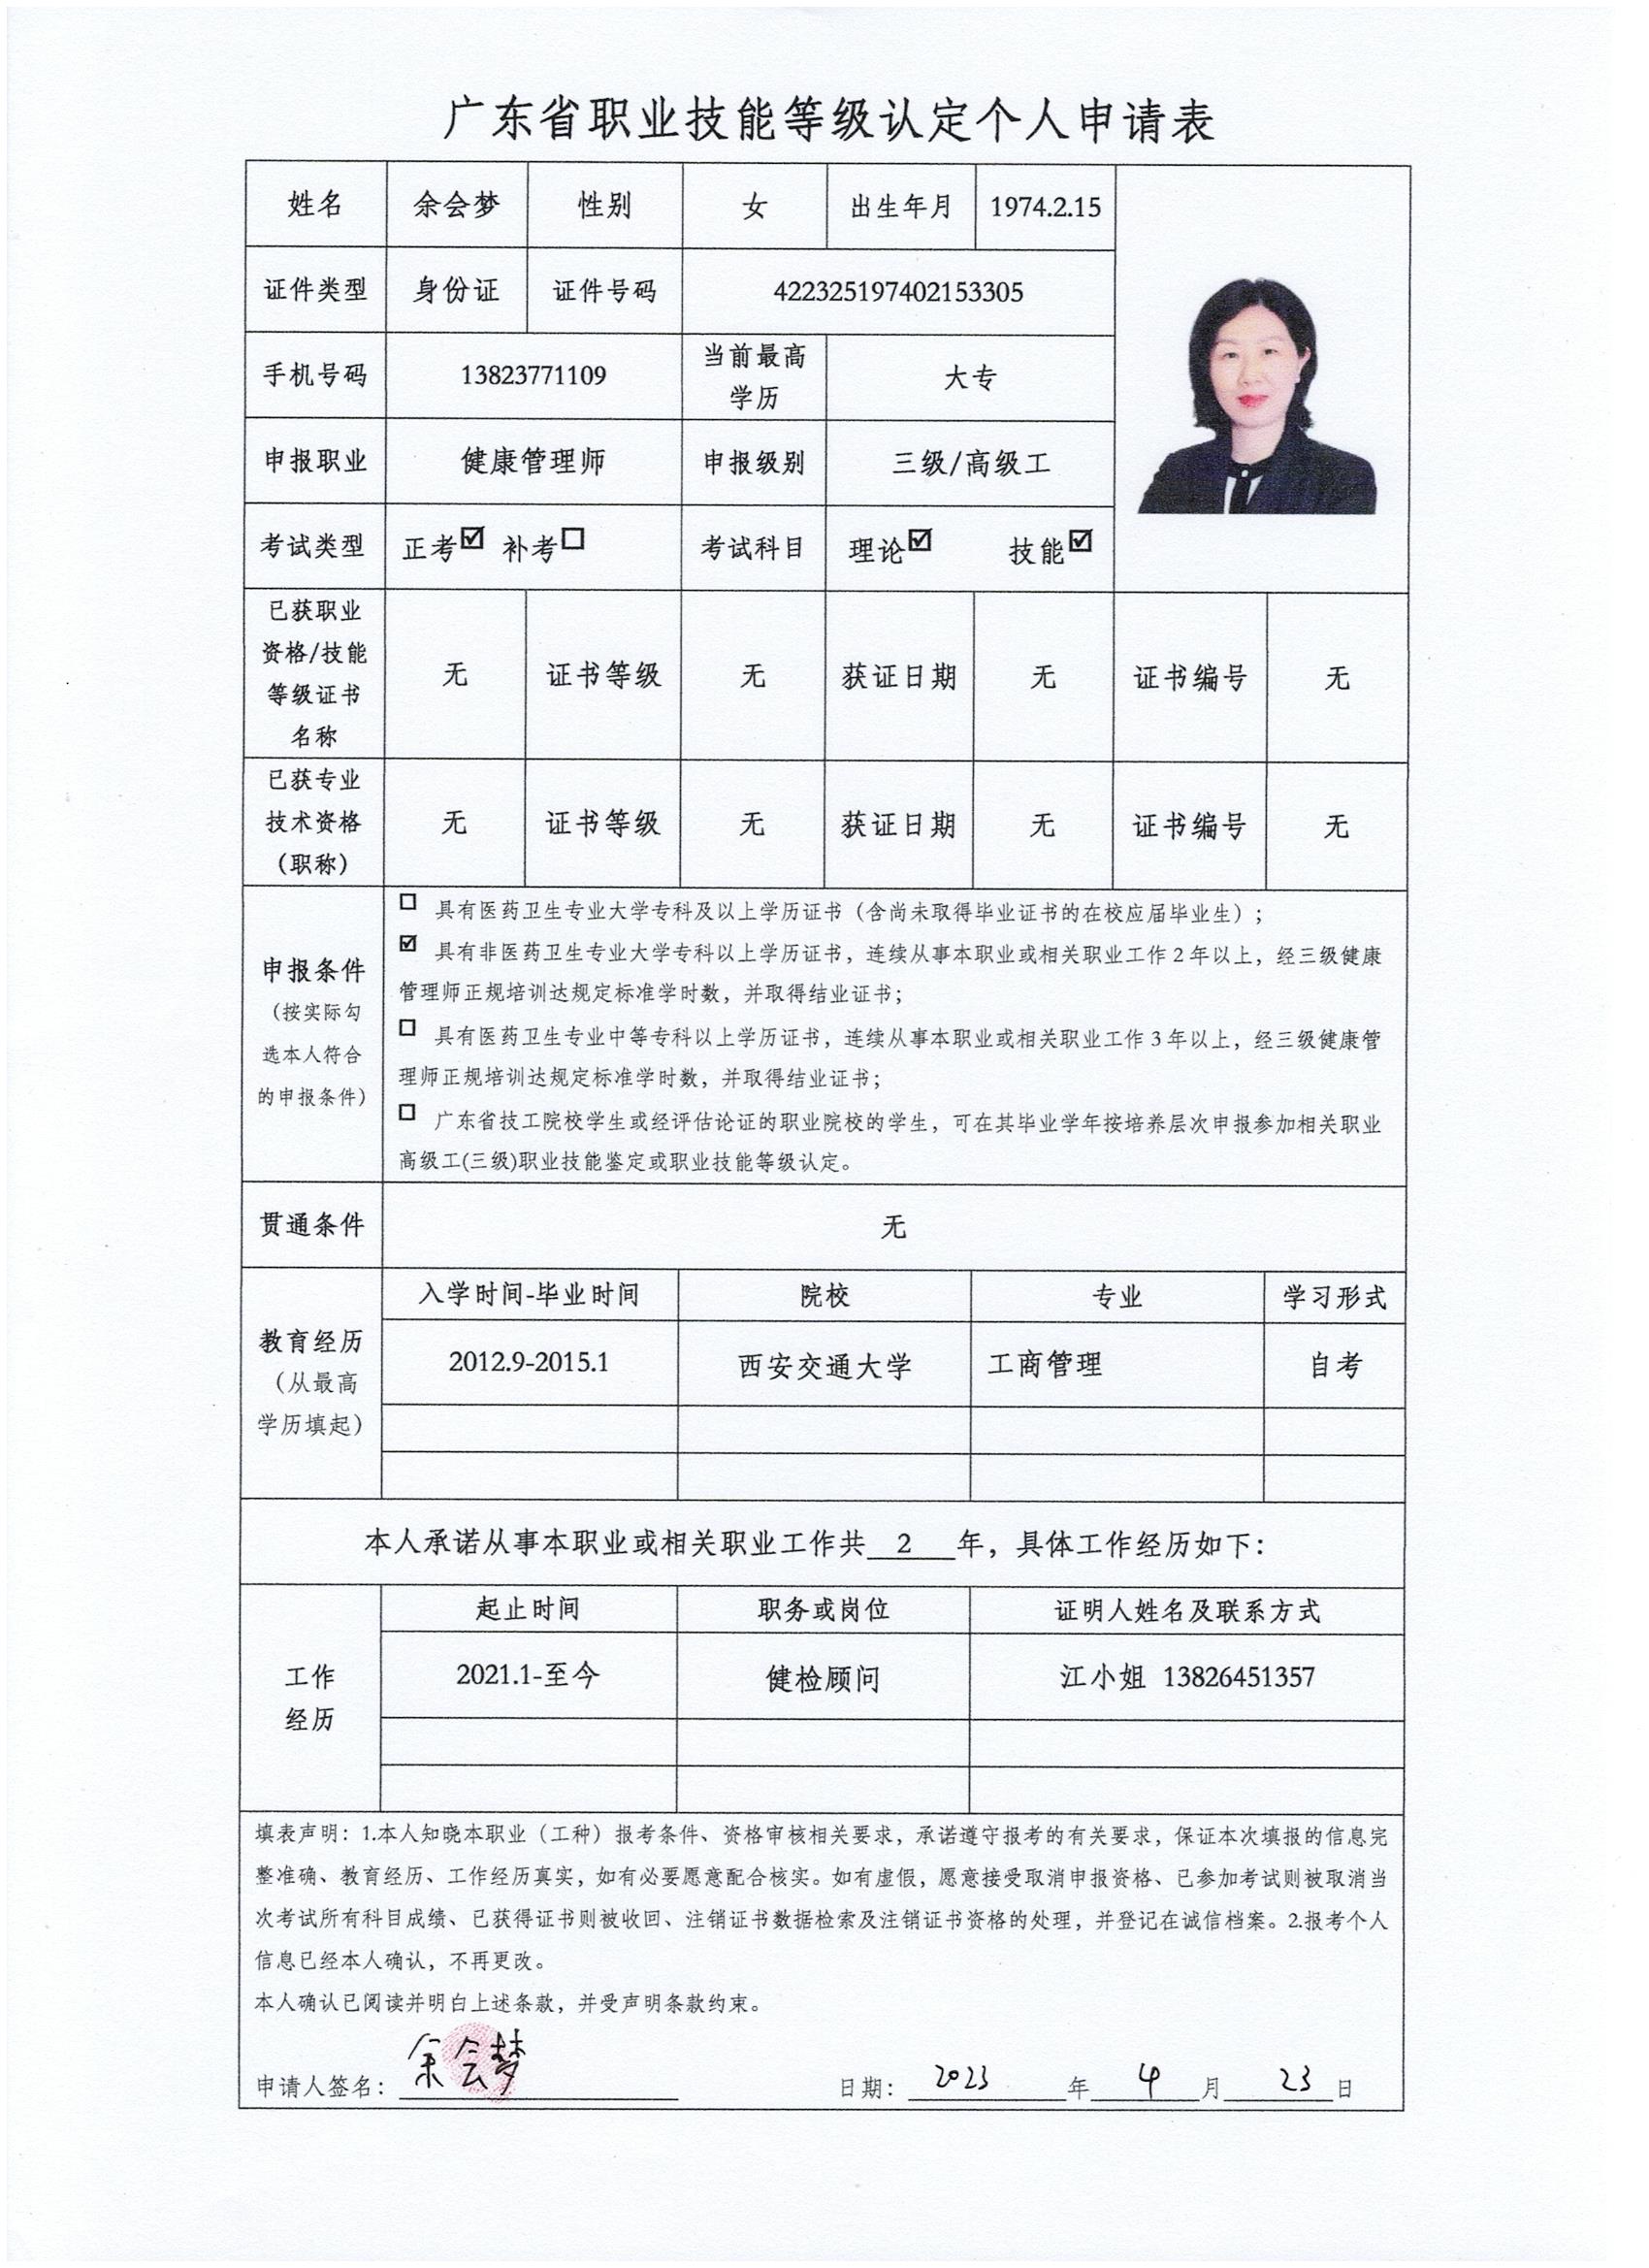 广东省职业技能等级认定个人申请表
姓名 余会梦 性别 女 出生年月 1974.2.15
证件类型 身份证 证件号码 422325197402153305
手机号码 13823771109 当前最高学历 大专
申报职业 健康管理师 申报级别 三级/高级工
考试类型 正考☑ 补考☐ 考试科目 理论☑ 技能☑
已获职业资格/技能等级证书名称 无 证书等级 无 获证日期 无 证书编号 无
已获专业技术资格（职称） 无 证书等级 无 获证日期 无 证书编号 无
申报条件
（按实际勾选本人符合的申报条件）
☐ 具有医药卫生专业大学专科及以上学历证书（含尚未取得毕业证书的在校应届毕业生）；
☑ 具有非医药卫生专业大学专科以上学历证书，连续从事本职业或相关职业工作2年以上，经三级健康
管理师正规培训达规定标准学时数，并取得结业证书；
☐ 具有医药卫生专业中等专科以上学历证书，连续从事本职业或相关职业工作3年以上，经三级健康管
理师正规培训达规定标准学时数，并取得结业证书；
☐ 广东省技工院校学生或经评估论证的职业院校的学生，可在其毕业学年按培养层次申报参加相关职业
高级工(三级)职业技能鉴定或职业技能等级认定。
贯通条件 无
教育经历
（从最高学历填起）
入学时间-毕业时间 院校 专业 学习形式
2012.9-2015.1 西安交通大学 工商管理 自考
本人承诺从事本职业或相关职业工作共 2 年，具体工作经历如下：
工作经历
起止时间 职务或岗位 证明人姓名及联系方式
2021.1-至今 健检顾问 江小姐 13826451357
填表声明：1.本人知晓本职业（工种）报考条件、资格审核相关要求，承诺遵守报考的有关要求，保证本次填报的信息完
整准确、教育经历、工作经历真实，如有必要愿意配合核实。如有虚假，愿意接受取消申报资格、已参加考试则被取消当
次考试所有科目成绩、已获得证书则被收回、注销证书数据检索及注销证书资格的处理，并登记在诚信档案。2.报考个人
信息已经本人确认，不再更改。
本人确认已阅读并明白上述条款，并受声明条款约束。
申请人签名：余会梦 日期：2023 年 4 月 23 日